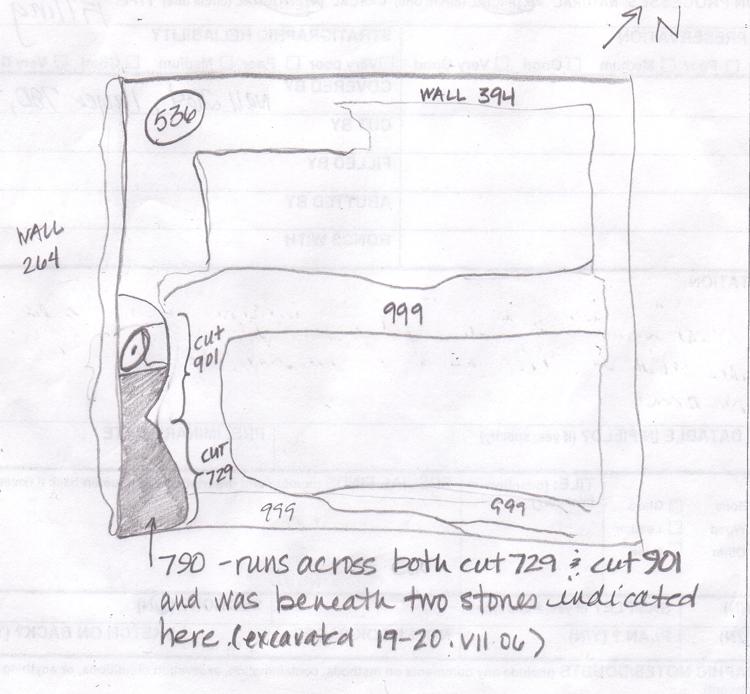 N
WALL 394
536
WALL
264
999
CUT
901
CUT
729
999
999
790 - runs across both cut 729 & cut 901
and was beneath two stones indicated
here (excavated 19-20.VII.06)